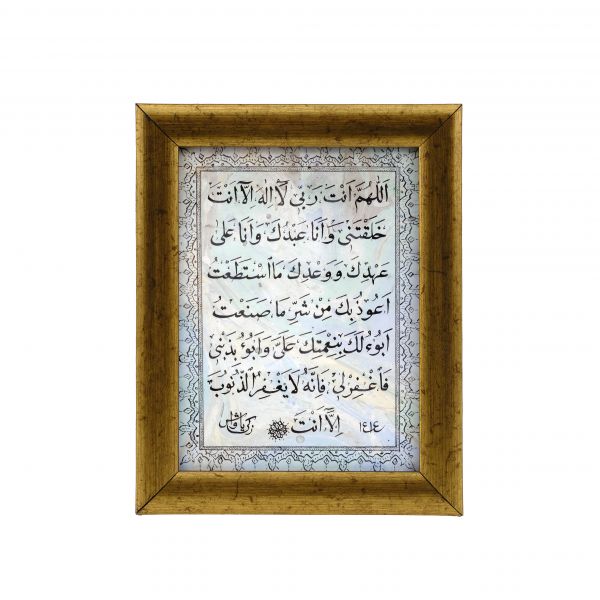 اَللّٰهُمَّ اَنْتَ رَبِّى لَا اِلٰهَ اِلَّا اَنْتَ
خَلَقْتَنِى وَاَنَا عَبْدُكَ وَاَنَا عَلٰى
عَهْدِكَ وَوَعْدِكَ مَا اسْتَطَعْتُ
اَعُوذُ بِكَ مِنْ شَرِّ مَا صَنَعْتُ
اَبُوءُ لَكَ بِنِعْمَتِكَ عَلَىَّ وَاَبُوءُ بِذَنْبِى
فَاغْفِرْلِى فَاِنَّهُ لَا يَغْفِرُ الذُّنُوبَ
اِلَّا اَنْتَ
١٤١٤